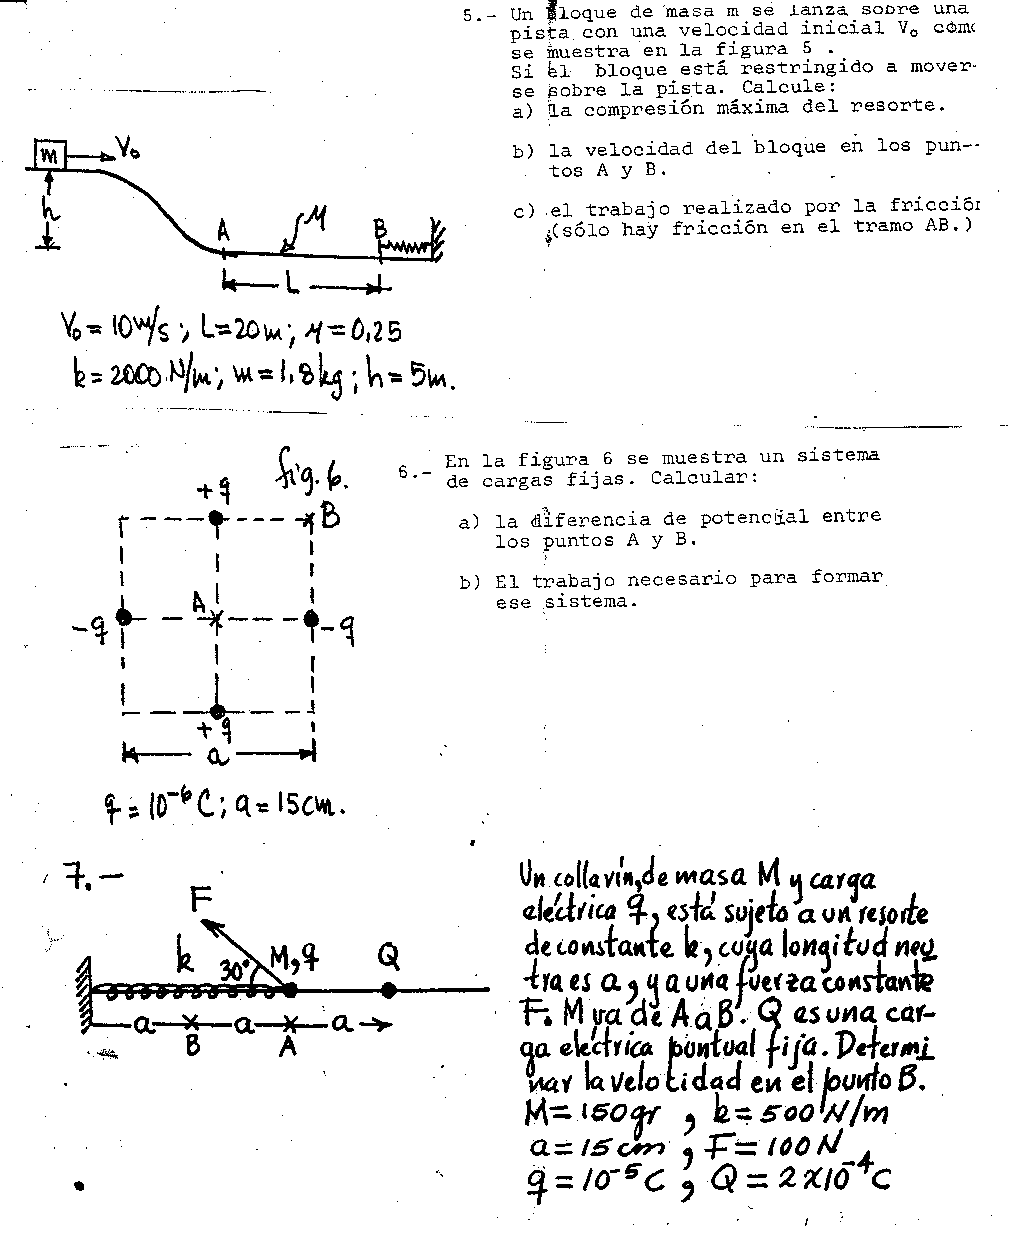 5.- Un bloque de masa m se lanza sobre una
pista con una velocidad inicial V₀ como
se muestra en la figura 5 .
Si el bloque está restringido a mover-
se sobre la pista. Calcule:
a) la compresión máxima del resorte.
b) la velocidad del bloque en los pun--
tos A y B.
c) el trabajo realizado por la fricción
(sólo hay fricción en el tramo AB.)
m V₀
h
A μ B
L
V₀ = 10 m/s ; L = 20 m ; μ = 0,25
k = 2000 N/m ; m = 1,8 kg ; h = 5 m.
6.- En la figura 6 se muestra un sistema
de cargas fijas. Calcular:
a) la diferencia de potencial entre
los puntos A y B.
b) El trabajo necesario para formar
ese sistema.
fig. 6.
+q
B
A
-q -q
+q
a
q = 10⁻⁶ C ; a = 15 cm.
7.-
F
k 30° M, q Q
a a a
B A
Un collarín, de masa M y carga
eléctrica q, está sujeto a un resorte
de constante k, cuya longitud neu
tra es a, y a una fuerza constante
F. M va de A a B. Q es una car-
ga eléctrica puntual fija. Determi
nar la velocidad en el punto B.
M = 150 gr , k = 500 N/m
a = 15 cm , F = 100 N
q = 10⁻⁵ C , Q = 2 x 10⁻⁴ C